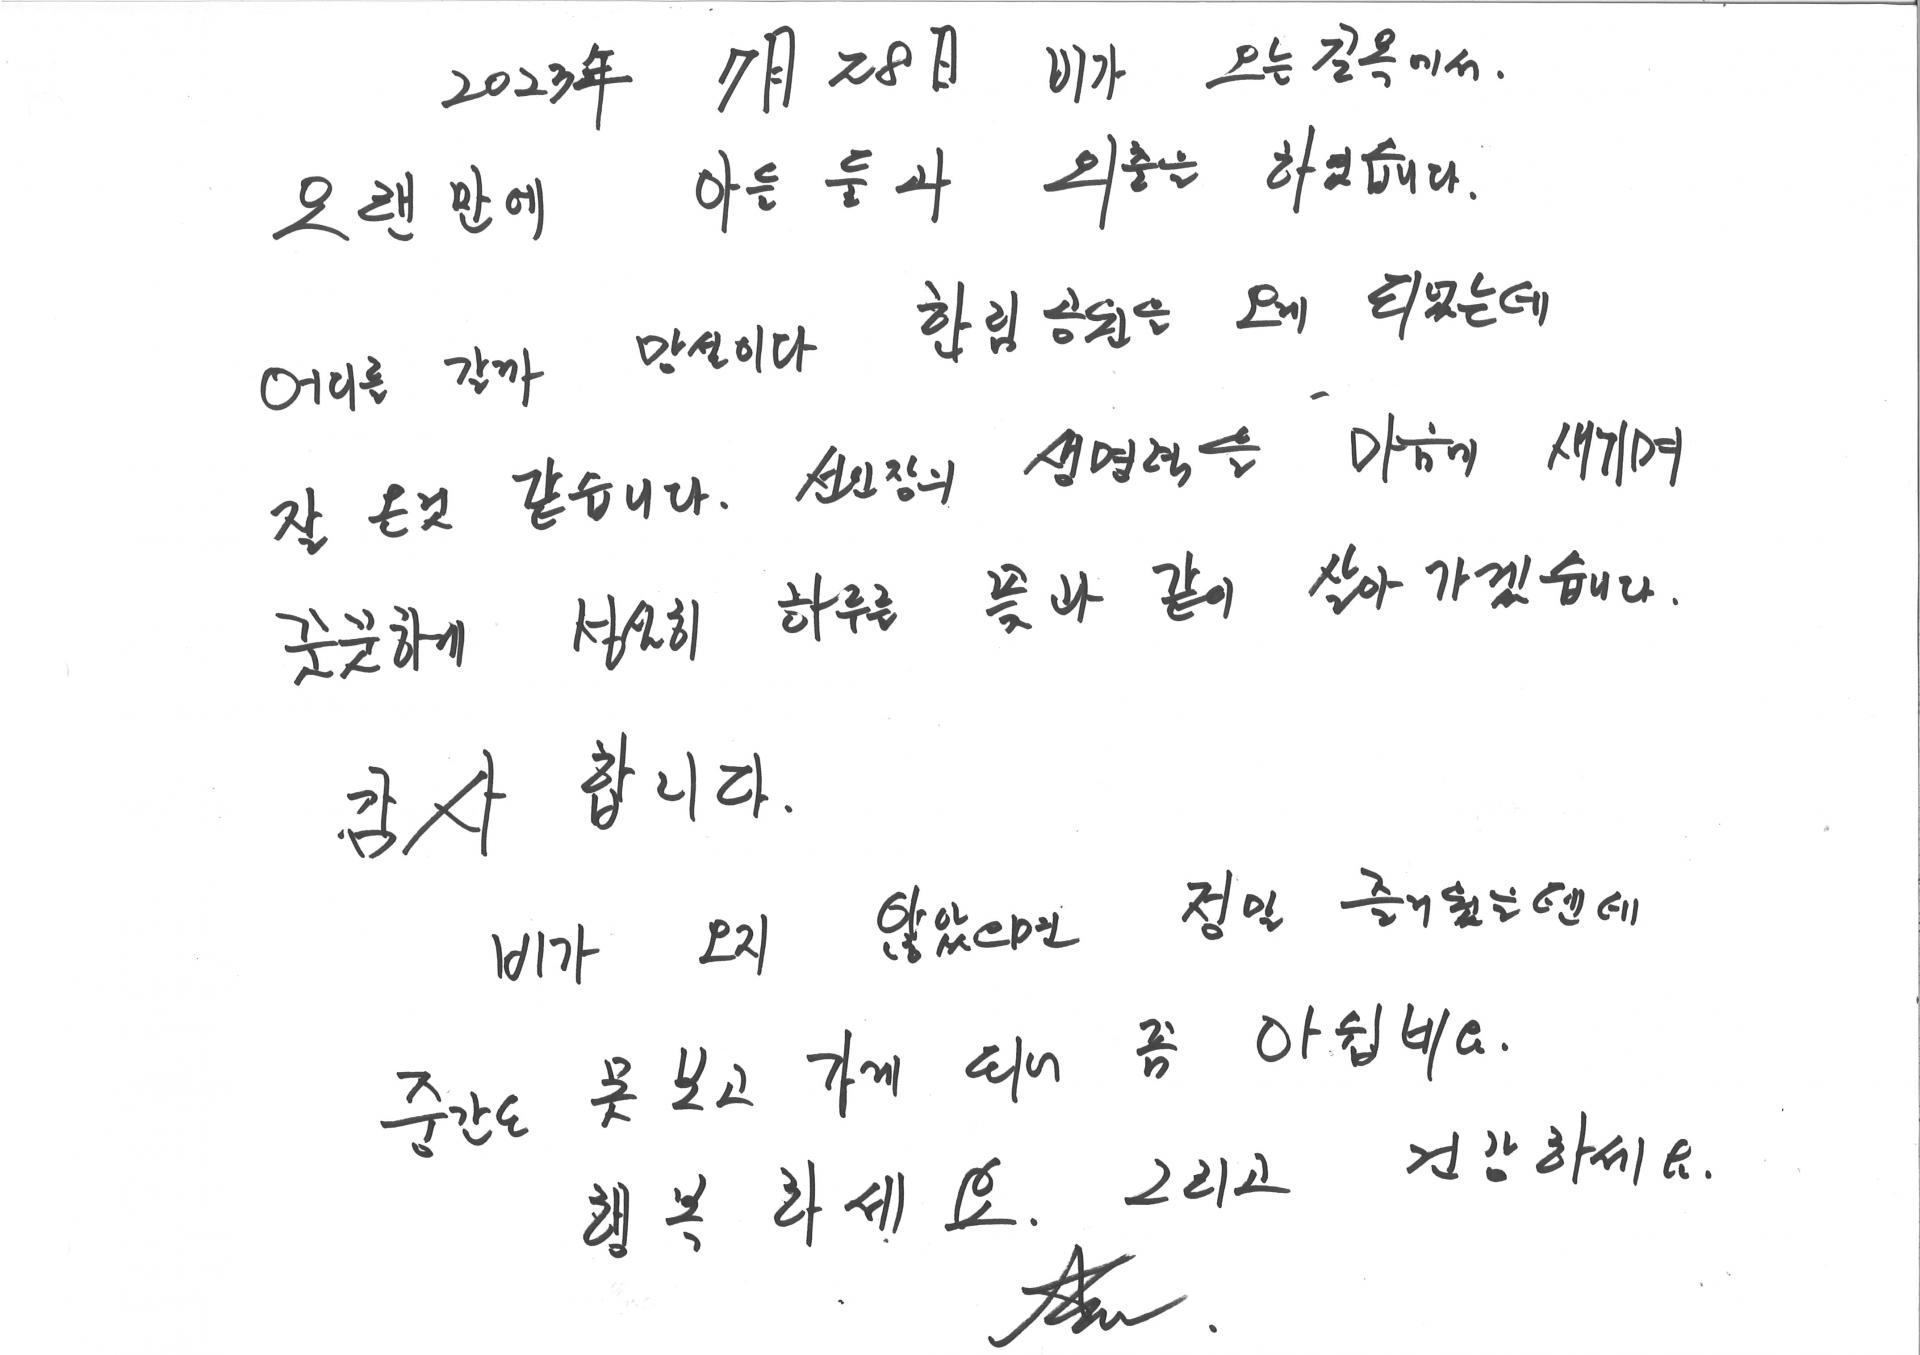 2023年 7月 28日 비가 오는 길목에서.
오랜만에 아들 둘과 외출을 하였습니다.
어디를 갈까 망설이다 한림공원을 오게 되었는데
잘 온것 같습니다. 선인장의 생명력을 마음에 새기며
꿋꿋하게 성실히 하루를 꽃과 같이 살아가겠습니다.
감사합니다.
비가 오지 않았으면 정말 즐거웠을텐데
중간도 못보고 가게 되니 좀 아쉽네요.
행복하세요. 그리고 건강하세요.